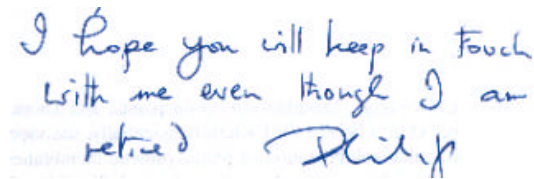 I hope you will keep in touch
with me even though I am
retired Philip